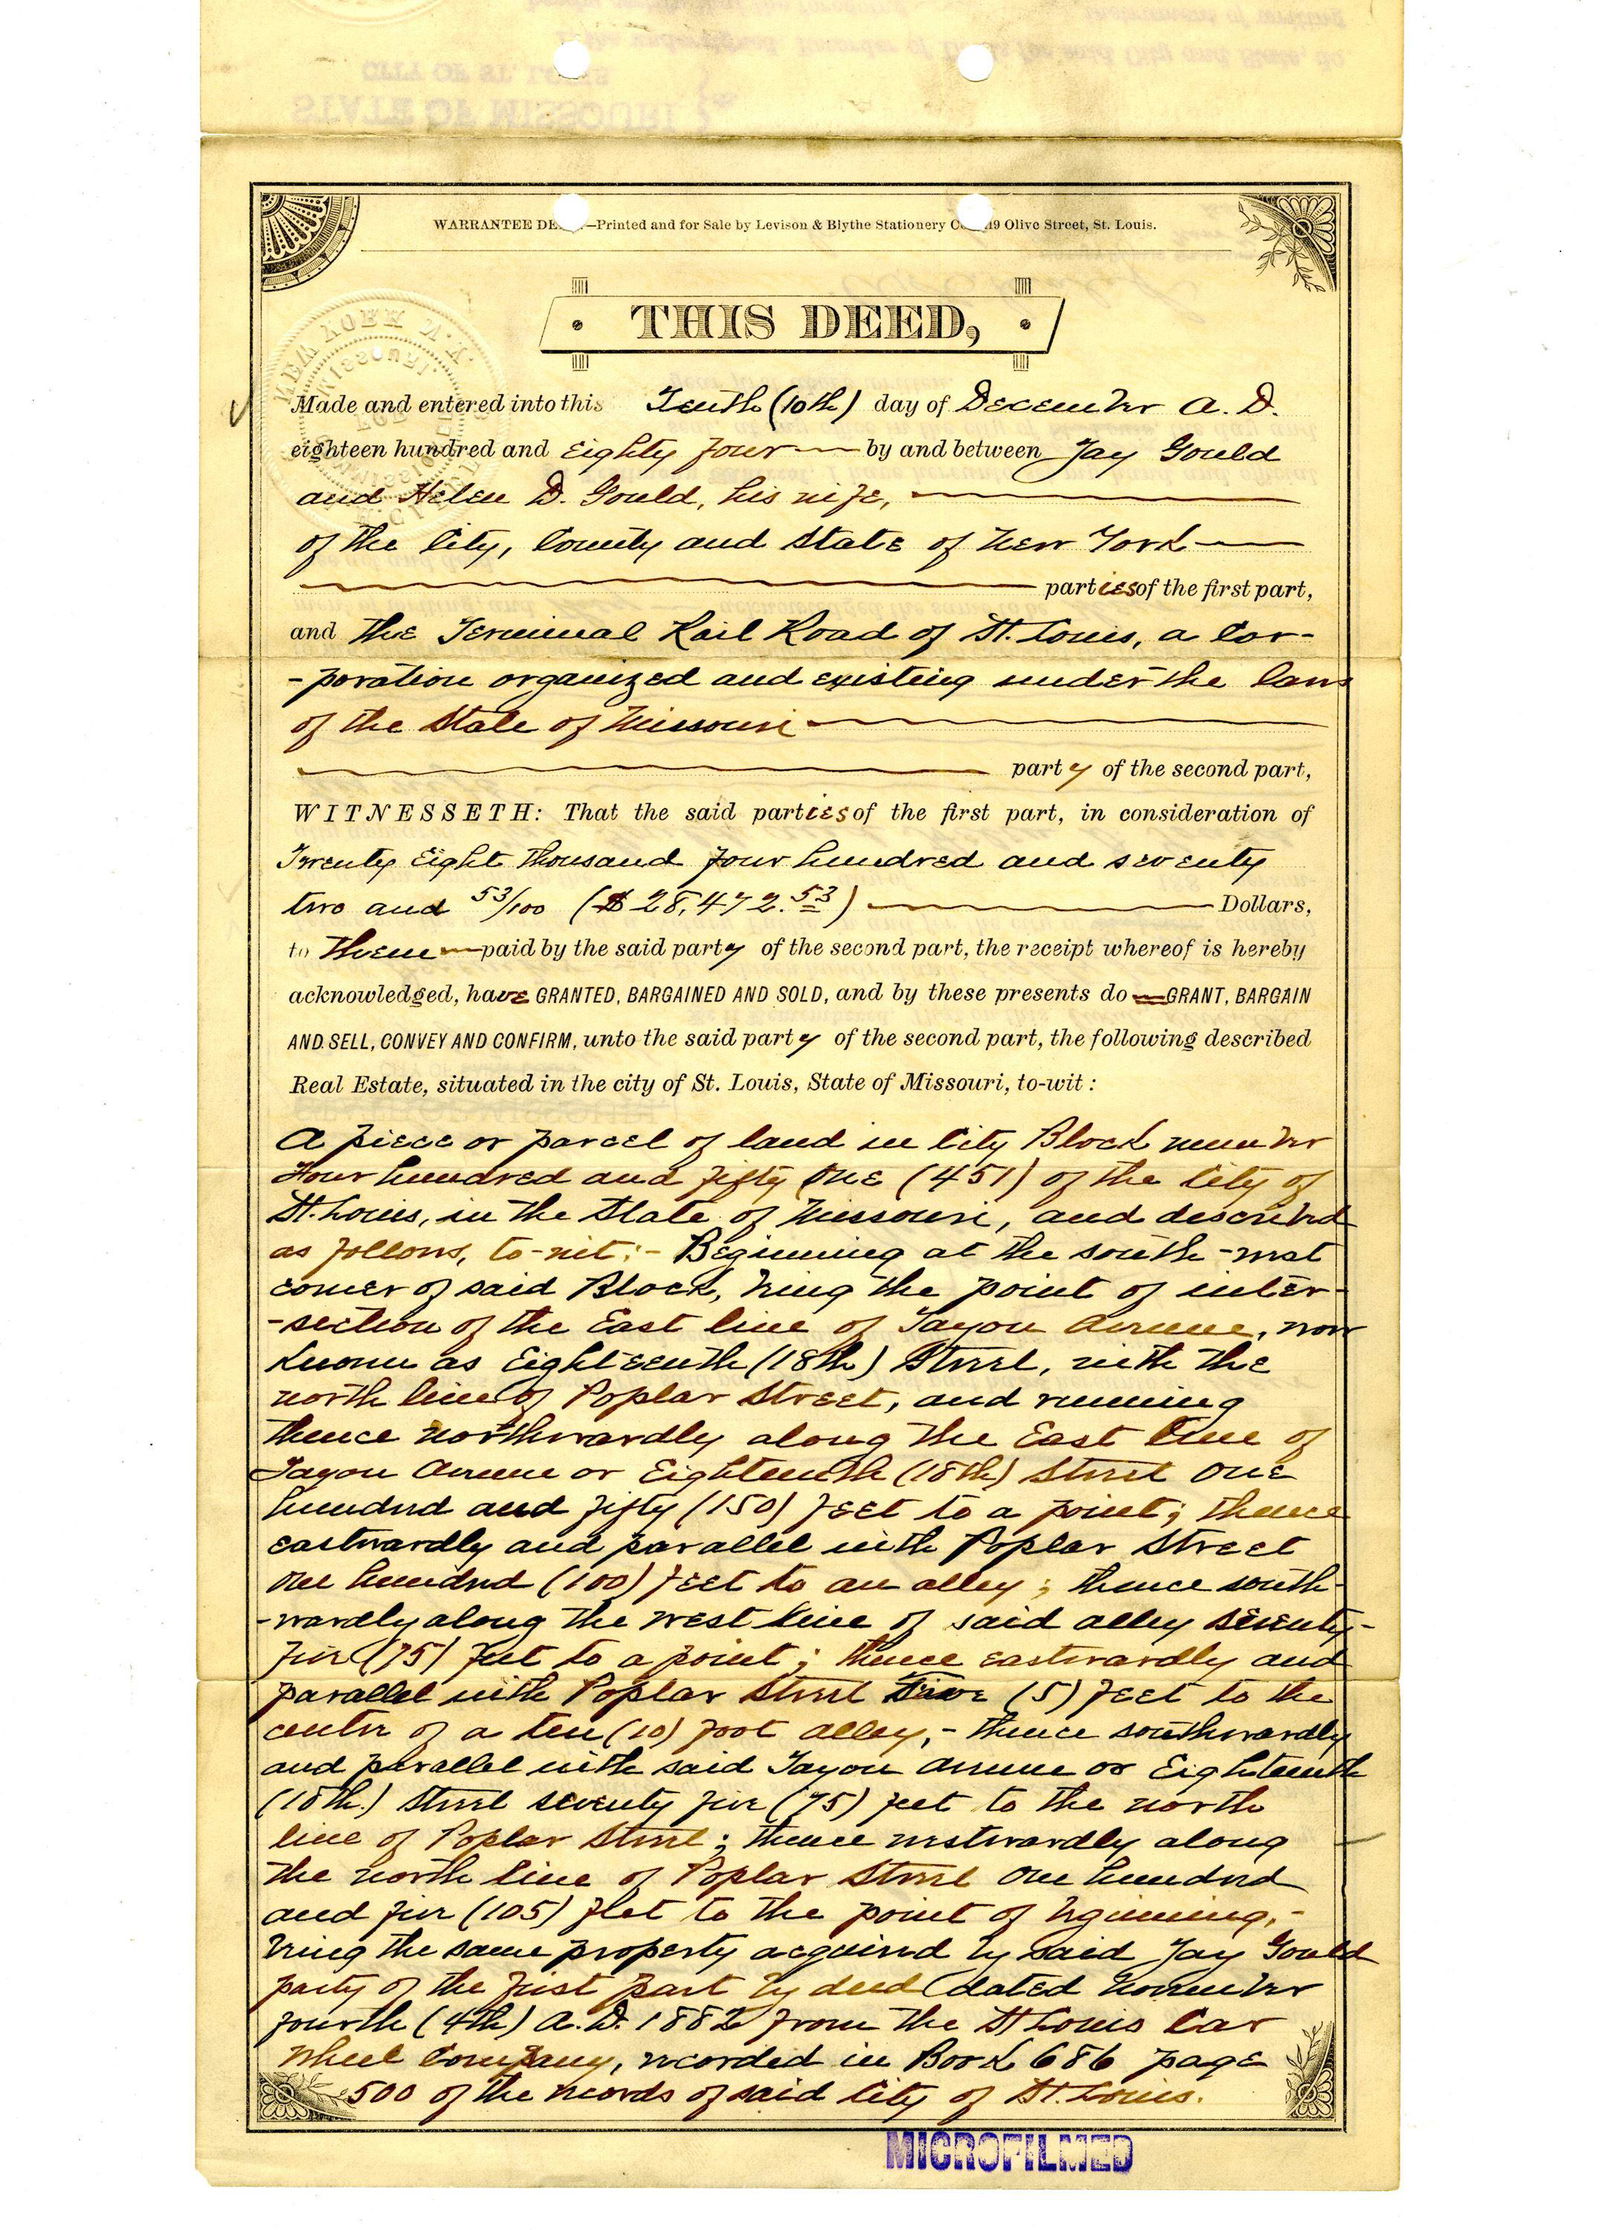 WARRANTEE DE—Printed and for Sale by Levison & Blythe Stationery C 19 Olive Street, St. Louis.
THIS DEED,
Made and entered into this Tenth (10th) day of December A. D.
eighteen hundred and Eighty four by and between Jay Gould
and Helen D. Gould, his wife,
of the City, County and State of New York
parties of the first part,
and The Terminal Rail Road of St. Louis, a Cor-
-poration organized and existing under the laws
of the State of Missouri
party of the second part,
WITNESSETH: That the said parties of the first part, in consideration of
Twenty Eight thousand four hundred and seventy
two and 53/100 ($28,472.53) Dollars,
to them paid by the said party of the second part, the receipt whereof is hereby
acknowledged, have GRANTED, BARGAINED AND SOLD, and by these presents do GRANT, BARGAIN
AND SELL, CONVEY AND CONFIRM, unto the said party of the second part, the following described
Real Estate, situated in the city of St. Louis, State of Missouri, to-wit:
A piece or parcel of land in City Block number
Four hundred and fifty One (451) of the City of
St. Louis, in the State of Missouri, and described
as follows, to-wit:- Beginning at the south-west
corner of said Block, being the point of inter-
-section of the East line of Tayon Avenue, now
known as Eighteenth (18th) Street, with the
north line of Poplar Street, and running
thence northwardly along the East line of
Tayon Avenue or Eighteenth (18th) Street One
hundred and fifty (150) feet to a point; thence
eastwardly and parallel with Poplar Street
One hundred (100) feet to an alley; thence south-
-wardly along the west line of said alley seventy-
five (75) feet to a point; thence eastwardly and
parallel with Poplar Street (5) feet to the
center of a ten (10) foot alley,- thence southwardly
and parallel with said Tayon Avenue or Eighteenth
(18th.) Street seventy five (75) feet to the north
line of Poplar Street; thence westwardly along
the north line of Poplar Street One hundred
and five (105) feet to the point of beginning,-
being the same property acquired by said Jay Gould
party of the first part by deed dated November
fourth (4th) A.D. 1882 from the St Louis Car
Wheel Company, recorded in Book 686 page
500 of the records of said City of St. Louis.
MICROFILMED